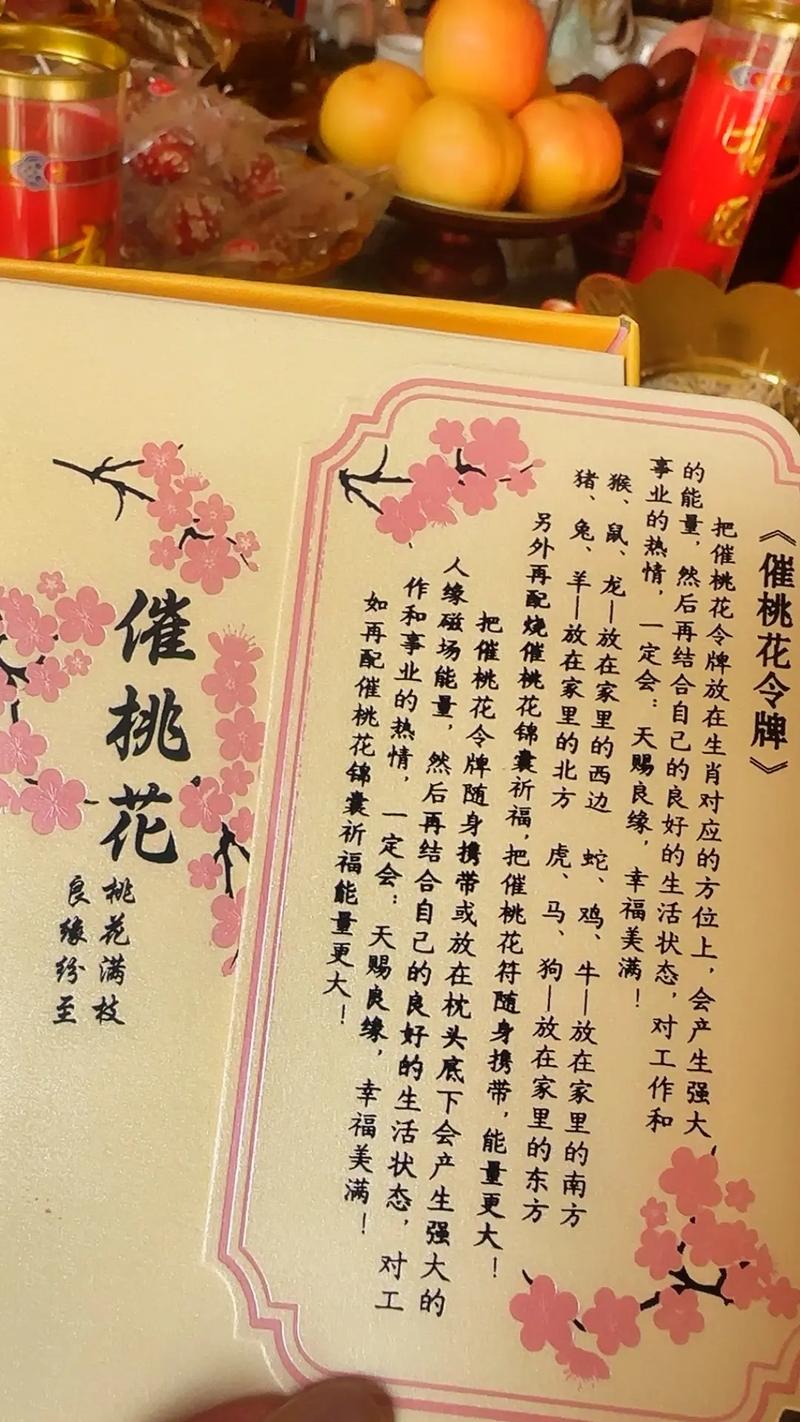 《催桃花令牌》
把催桃花令牌放在生肖对应的方位上，会产生强大
的能量，然后再结合自己的良好的生活状态，对工作和
事业的热情，一定会：天赐良缘，幸福美满！
猴、鼠、龙—放在家里的西边 蛇、鸡、牛—放在家里的南方
猪、兔、羊—放在家里的北方 虎、马、狗—放在家里的东方
另外再配烧催桃花锦囊祈福，把催桃花符随身携带，能量更大！
把催桃花令牌随身携带或放在枕头底下会产生强大的
人缘磁场能量，然后再结合自己的良好的生活状态，对工
作和事业的热情，一定会：天赐良缘，幸福美满！
如再配催桃花锦囊祈福能量更大！
催桃花
桃花满枝
良缘纷至